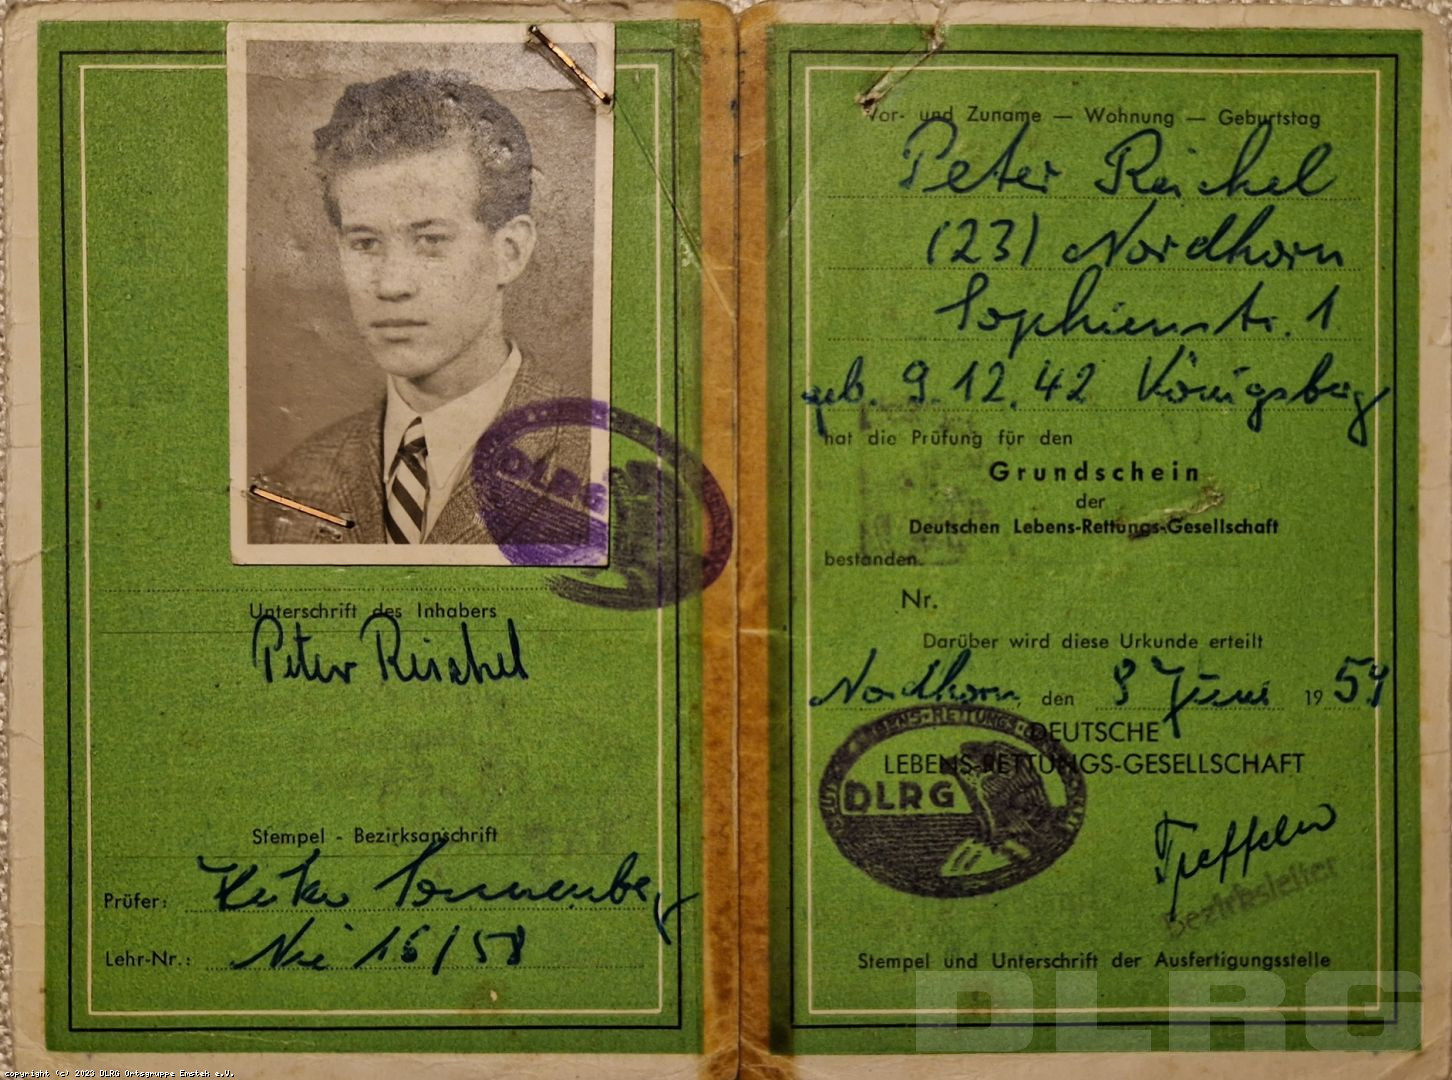 DLRG
Unterschrift des Inhabers
Peter Reichel
Stempel - Bezirksanschrift
Prüfer: Heiko Sonnenberg
Lehr-Nr.: Nie 16/58
Vor- und Zuname — Wohnung — Geburtstag
Peter Reichel
(23) Nordhorn
Sophienstr. 1
geb. 9.12.42 Königsberg
hat die Prüfung für den
Grundschein
der
Deutschen Lebens-Rettungs-Gesellschaft
bestanden.
Nr.
Darüber wird diese Urkunde erteilt
Nordhorn, den 9 Juni 1959
DEUTSCHE
LEBENS-RETTUNGS-GESELLSCHAFT
LEBENS-RETTUNGS-
DLRG
Bezirksleiter
Stempel und Unterschrift der Ausfertigungsstelle
DLRG
copyright (c) 2023 DLRG Ortsgruppe Emstek e.V.